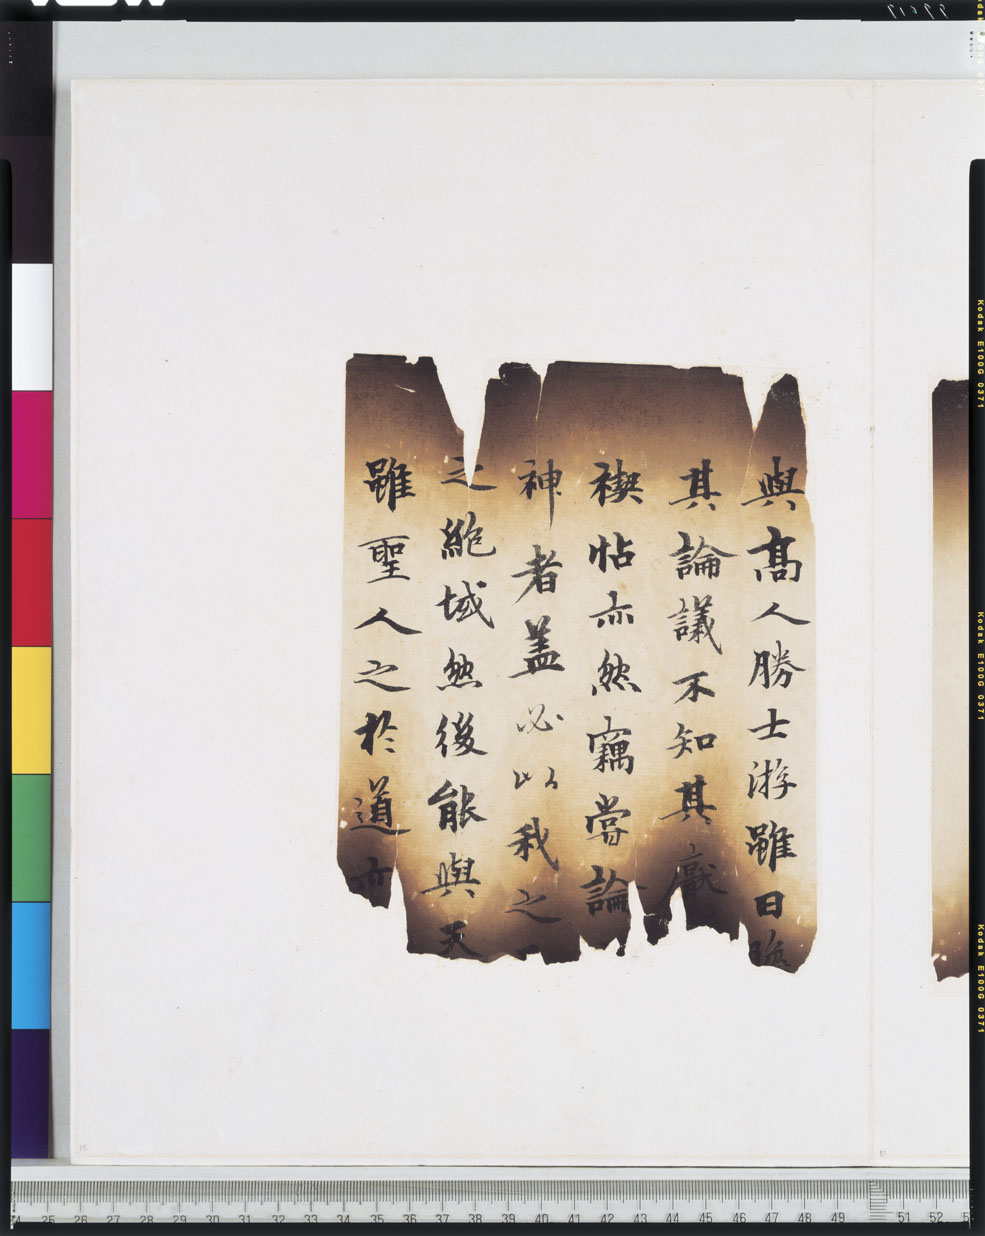 與髙人勝士游雖日
其論議不知其
禊帖亦然竊嘗論
神者盖必以我之
之絶域然後能與天
雖聖人之於道亦
Kodak E100G 0371
Kodak E100G 0371
Kodak E100G 0371
25 26 27 28 29 30 31 32 33 34 35 36 37 38 39 40 41 42 43 44 45 46 47 48 49 51 52